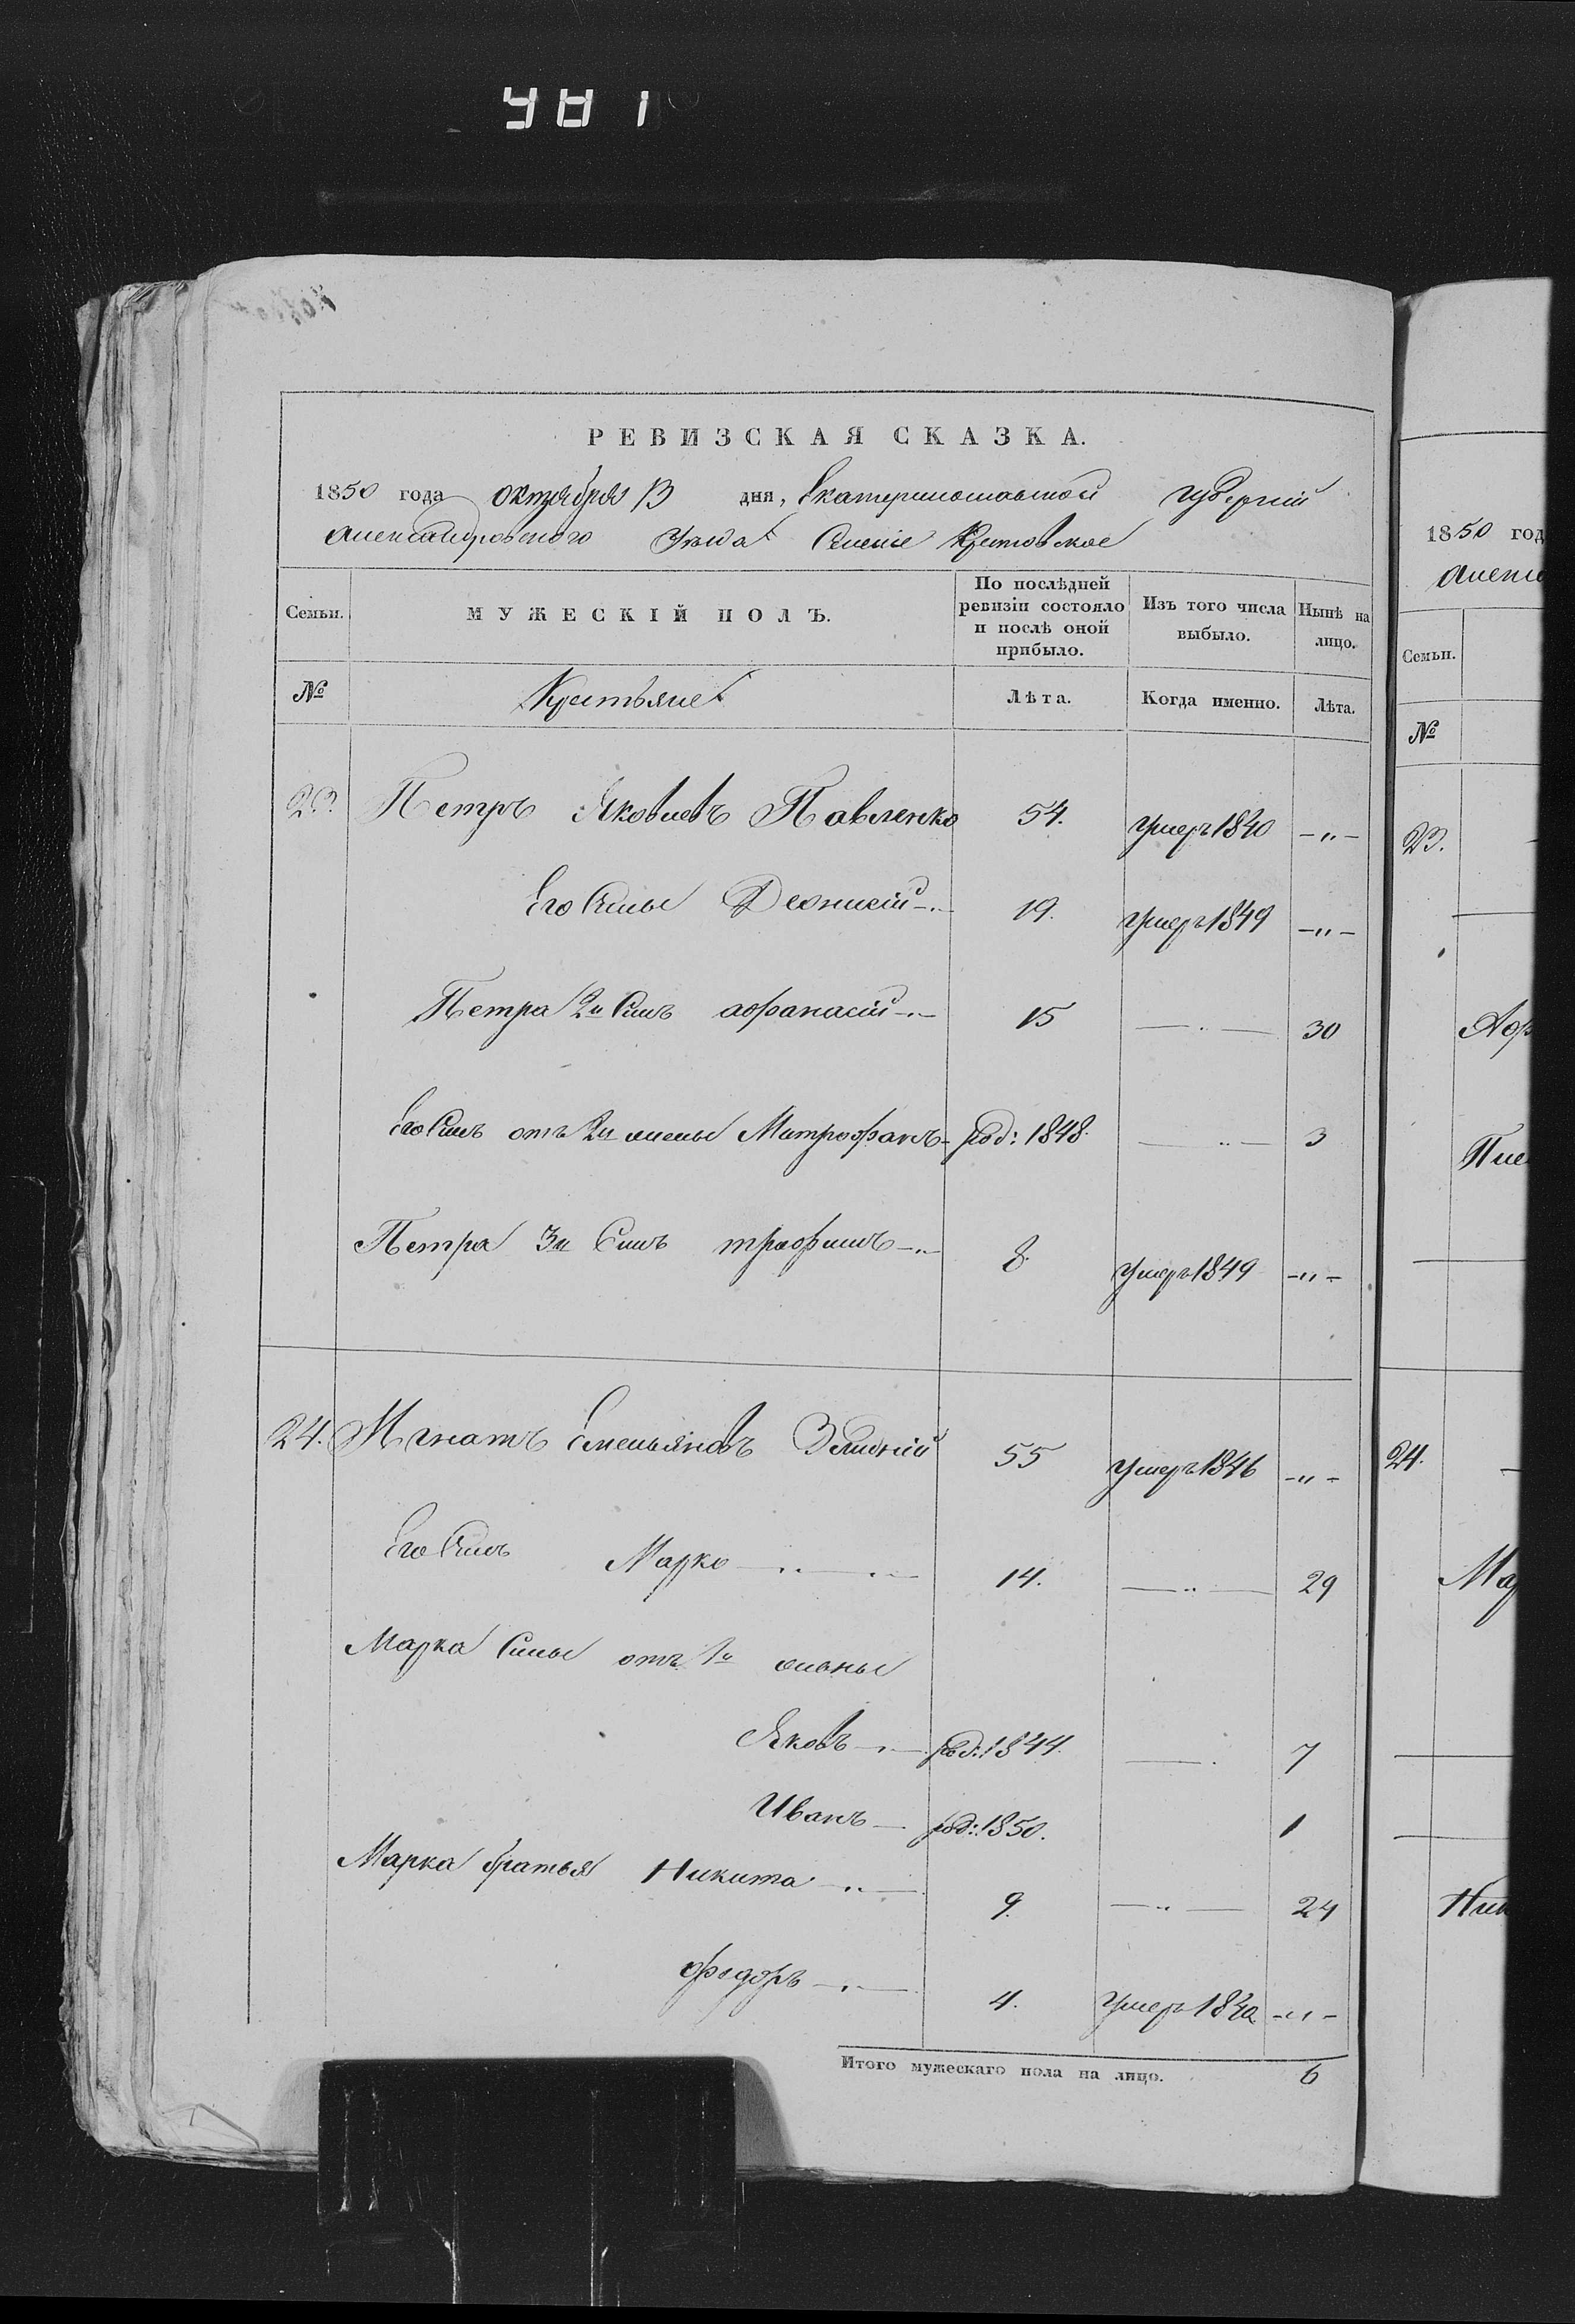 481
РЕВИЗСКАЯ СКАЗКА.
1850 года октября 13 дня, Екатеринославской губерній
александровского уезда Селеніе
Семьи. МУЖЕСКІЙ ПОЛЪ. По послѣдней ревизіи состояло и послѣ оной прибыло. Изъ того числа выбыло. Нынѣ на лицо.
№ Крестьяне Лѣта. Когда именно. Лѣта.
23. Петръ Яковлевъ Павленко 54. умеръ 1840 -"-
Его Сыны Деонисій 19. умеръ 1849 -"-
Петра 2й Сынъ афанасій 15 30
Его Сынъ отъ 2й жены Митрофанъ род: 1848. 3
Петра 3й Сынъ трофимъ 8. умеръ 1849 -"-
24. Игнатъ Емельяновъ 55 умеръ 1846 -"-
Его Сынъ Марко 14. 29
Марка Сыны отъ 1й жены
Яковъ род: 1844. 7
Иванъ род: 1850. 1
Марка братья Никита 9. 24
федоръ 4. умеръ -"-
Итого мужескаго пола на лицо. 6
1850 год
Семьи.
№
23.
24.
Мар